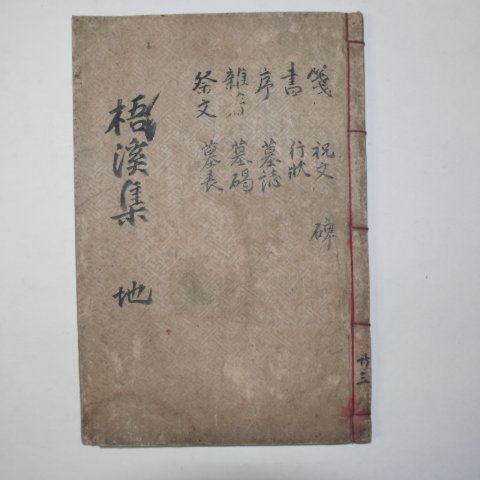 箋 祝文 碑
書 行狀
序 墓誌
雜 墓碣
祭文 墓表
梧溪集 地
三